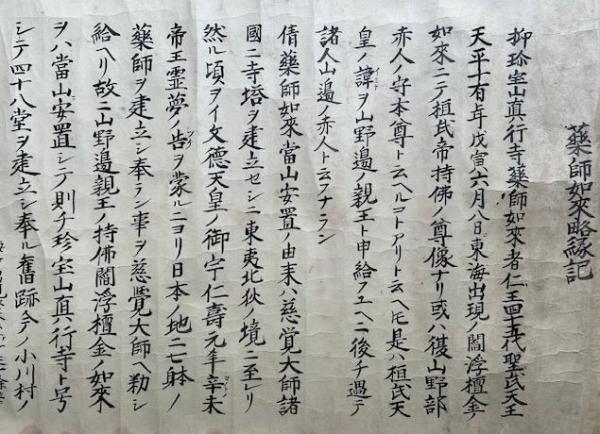 藥師如來略縁記
抑珍宝山真行寺藥師如來者仁王四十五代聖武天王
天平十有年戊寅六月八日東海出現ノ閻浮檀金ノ
如來ニテ桓武帝持佛ノ尊像ナリ或ハ復山野部
赤人ノ守本尊ト云ヘルコトアリト云ヘ𪜈是ハ桓武天
皇ノ諱ヲ山野邊ノ親王ト申給フユヘニ後チ過テ
諸人山邉ノ赤人ト云フナラン
倩藥師如來當山安置ノ由末ハ慈覚大師諸
國ニ寺塔ヲ建立セシニ東夷北狄ノ境ニ至レリ
然ル頃ヲイ文德天皇ノ御宇仁壽元年辛未
帝王霊夢ノ告ヲ蒙ルニヨリ日本ノ地ニ七躰ノ
藥師ヲ建立シ奉ラン事ヲ慈覺大師ヘ勅シ
給ヘリ故ニ山野邉親王ノ持佛閻浮檀金ノ如來
ヲハ當山安置シテ則チ珍宝山真行寺ト号
シテ四十八堂ヲ建立シ奉ル舊跡今ノ小川村ノ